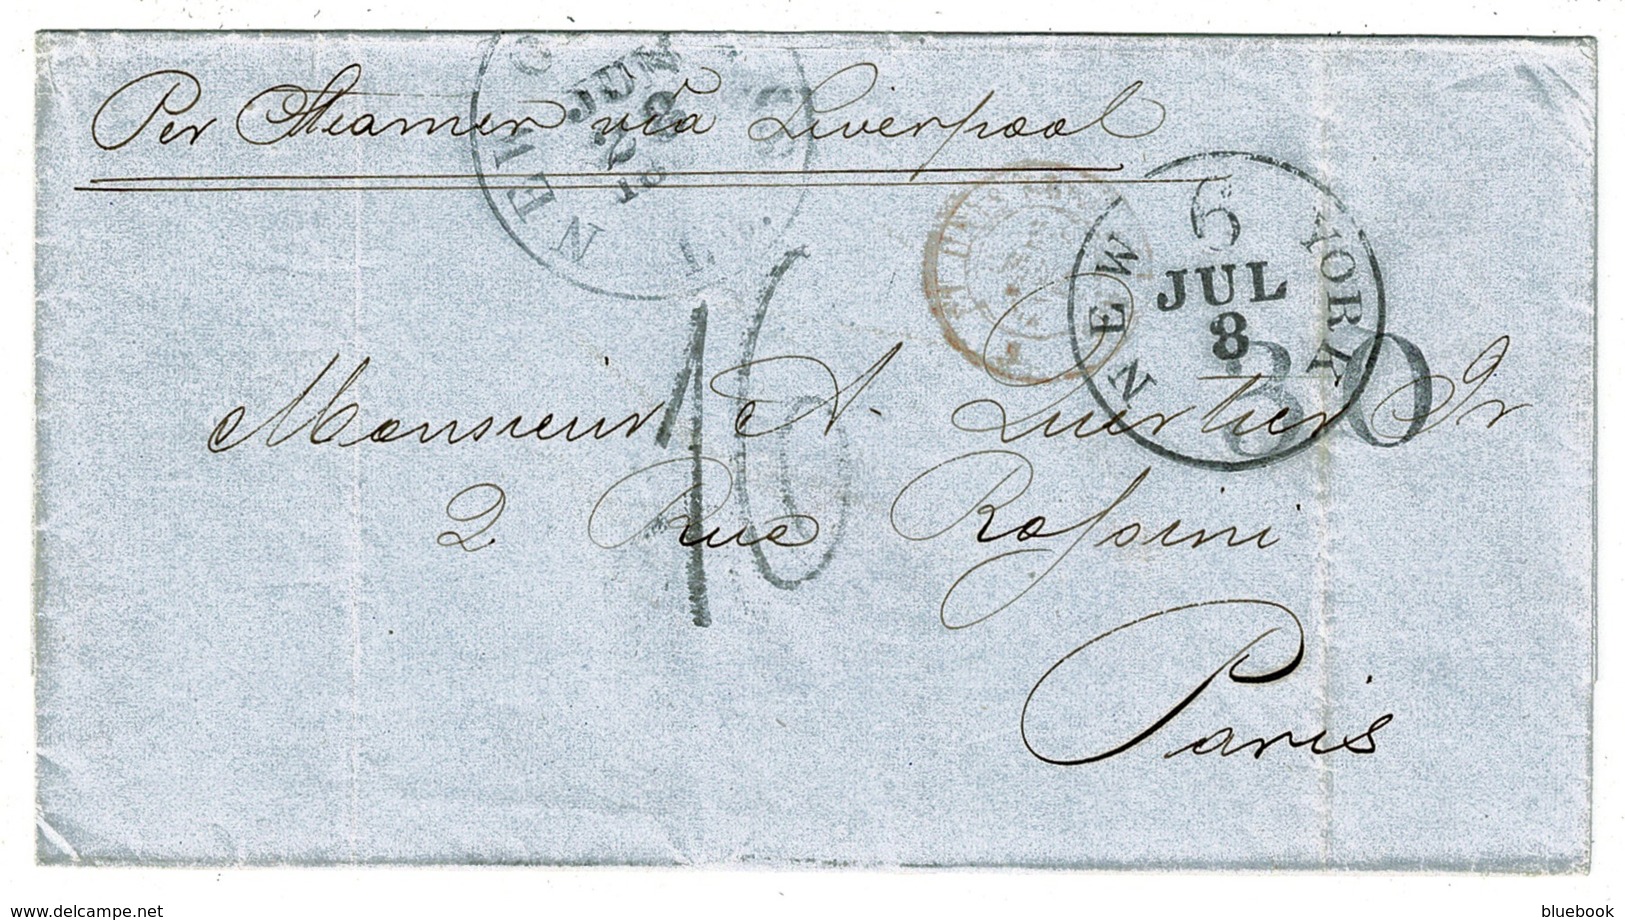 Per Steamer via Liverpool
NEW O
JUN
28
18
NEW YORK
6
JUL
8
30
16
Monsieur A. Quertier Jr
2 Rue Rossini
Paris
delcampe.net
bluebook